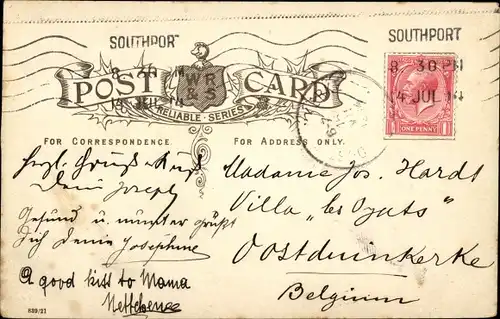 SOUTHPORT
8 30 PM
14 JUL 14
SOUTHPORT
8 30 PM
14 JUL 14
POST CARD
W R & S
RELIABLE SERIES
ONE PENNY
FOR CORRESPONDENCE.
FOR ADDRESS ONLY.
Herzl. Gruss u. Kuss
Dein Joseph
Gesund u. munter grüßt
Dich Deine Josephine
A good kiss to Mama
Madame Jos. Hardt
Villa „les Oyats"
Oostduinkerke
Belgium
689/21